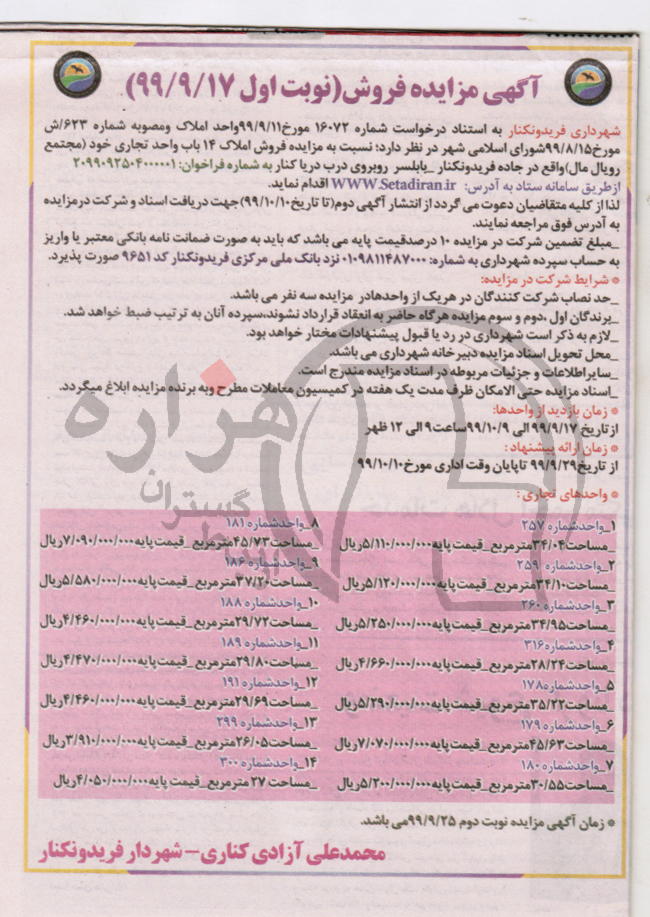 آگهی مزایده فروش(نوبت اول ۹۹/۹/۱۷)
شهرداری فریدونکنار به استناد درخواست شماره ۱۶۰۷۲ مورخ۹۹/۹/۱۱واحد املاک ومصوبه شماره ۶۲۳/ش
مورخ۹۹/۸/۱۵شورای اسلامی شهر در نظر دارد؛ نسبت به مزایده فروش املاک ۱۴ باب واحد تجاری خود (مجتمع
رویال مال)واقع در جاده فریدونکنار _بابلسر روبروی درب دریا کنار به شماره فراخوان: ۲۰۹۹۰۹۲۵۰۴۰۰۰۰۰۱
ازطریق سامانه ستاد به آدرس: WWW.Setadiran.ir اقدام نماید.
لذا از کلیه متقاضیان دعوت می گردد از انتشار آگهی دوم(تا تاریخ ۹۹/۱۰/۱۰)جهت دریافت اسناد و شرکت درمزایده
به آدرس فوق مراجعه نمایند.
_مبلغ تضمین شرکت در مزایده ۱۰ درصدقیمت پایه می باشد که باید به صورت ضمانت نامه بانکی معتبر یا واریز
به حساب سپرده شهرداری به شماره: ۰۱۰۹۸۱۱۴۸۷۰۰۰ نزد بانک ملی مرکزی فریدونکنار کد ۹۶۵۱ صورت پذیرد.
* شرایط شرکت در مزایده:
_حد نصاب شرکت کنندگان در هریک از واحدهادر مزایده سه نفر می باشد.
_برندگان اول ،دوم و سوم مزایده هرگاه حاضر به انعقاد قرارداد نشوند،سپرده آنان به ترتیب ضبط خواهد شد.
_لازم به ذکر است شهرداری در رد یا قبول پیشنهادات مختار خواهد بود.
_محل تحویل اسناد مزایده دبیرخانه شهرداری می باشد.
_سایراطلاعات و جزئیات مربوطه در اسناد مزایده مندرج است.
_اسناد مزایده حتی الامکان ظرف مدت یک هفته در کمیسیون معاملات مطرح وبه برنده مزایده ابلاغ میگردد.
* زمان بازدید از واحدها:
ازتاریخ ۹۹/۹/۱۷ الی ۹۹/۱۰/۹ساعت۹ الی ۱۲ ظهر
* زمان ارائه پیشنهاد :
از تاریخ۹۹/۹/۲۹ تاپایان وقت اداری مورخ۹۹/۱۰/۱۰
* واحدهای تجاری :
۱_واحدشماره ۲۵۷
_مساحت۳۴/۰۴مترمربع_قیمت پایه۵/۱۱۰/۰۰۰/۰۰۰ریال
۲_واحدشماره ۲۵۹
_مساحت۳۴/۱۰مترمربع_قیمت پایه۵/۱۲۰/۰۰۰/۰۰۰ریال
۳_واحدشماره ۲۶۰
_مساحت۳۴/۹۵مترمربع_قیمت پایه۵/۲۵۰/۰۰۰/۰۰۰ریال
۴_واحدشماره۳۱۶
_مساحت۲۸/۲۴مترمربع_قیمت پایه۴/۶۶۰/۰۰۰/۰۰۰ریال
۵_واحدشماره۱۷۸
_مساحت۳۵/۲۲مترمربع_قیمت پایه۵/۲۹۰/۰۰۰/۰۰۰ریال
۶_واحدشماره ۱۷۹
_مساحت۴۵/۶۳مترمربع_قیمت پایه۷/۰۷۰/۰۰۰/۰۰۰ریال
۷_واحدشماره ۱۸۰
_مساحت۳۰/۵۵مترمربع_قیمت پایه۵/۲۰۰/۰۰۰/۰۰۰ریال
۸_واحدشماره ۱۸۱
_مساحت۴۵/۷۳مترمربع_قیمت پایه۷/۰۹۰/۰۰۰/۰۰۰ریال
۹_واحدشماره ۱۸۶
_مساحت۳۷/۲۰مترمربع_قیمت پایه۵/۵۸۰/۰۰۰/۰۰۰ریال
۱۰_واحدشماره ۱۸۸
_مساحت۲۹/۷۲مترمربع_قیمت پایه۴/۴۶۰/۰۰۰/۰۰۰ریال
۱۱_واحدشماره ۱۸۹
_مساحت۲۹/۸۰مترمربع_قیمت پایه۴/۴۷۰/۰۰۰/۰۰۰ریال
۱۲_واحدشماره ۱۹۱
_مساحت۲۹/۶۹مترمربع_قیمت پایه۴/۴۶۰/۰۰۰/۰۰۰ریال
۱۳_واحدشماره ۲۹۹
_مساحت۲۶/۰۵مترمربع_قیمت پایه۳/۹۱۰/۰۰۰/۰۰۰ریال
۱۴_واحدشماره ۳۰۰
_مساحت ۲۷ مترمربع_قیمت پایه۴/۰۵۰/۰۰۰/۰۰۰ریال
* زمان آگهی مزایده نوبت دوم ۹۹/۹/۲۵می باشد.
محمدعلی آزادی کناری- شهردار فریدونکنار
هزاره
گستران